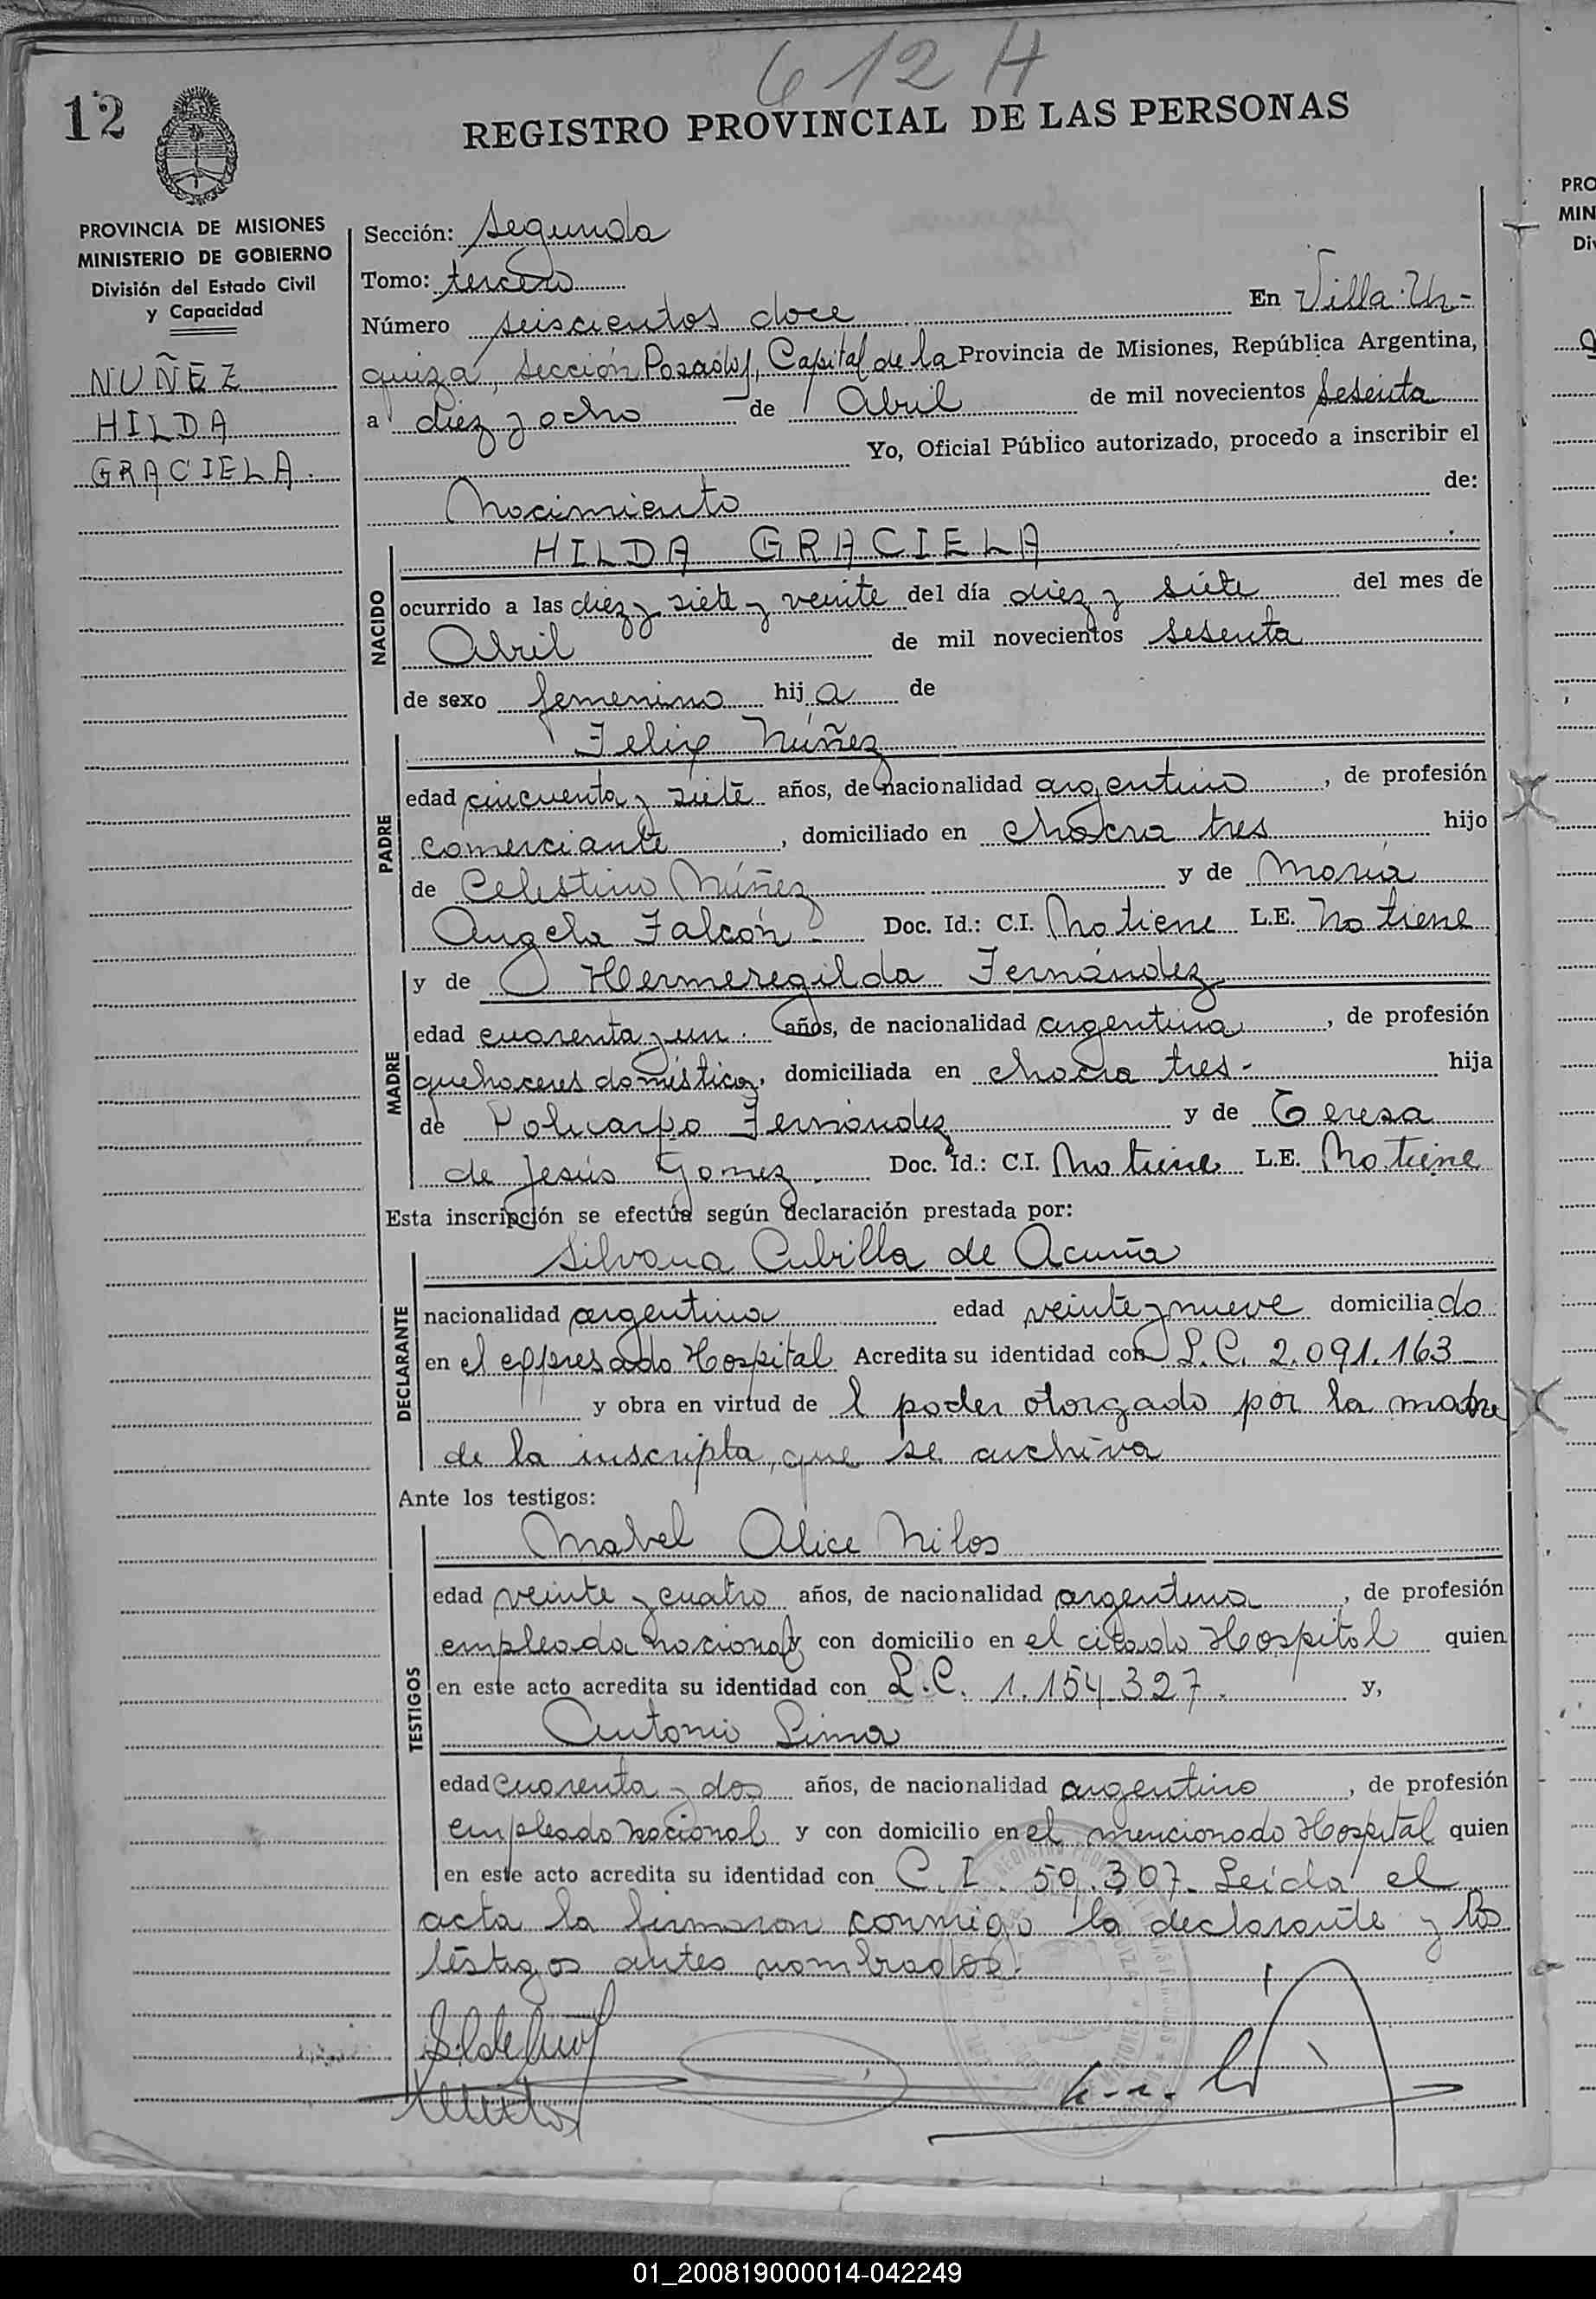 612 H
12
REGISTRO PROVINCIAL DE LAS PERSONAS
PROVINCIA DE MISIONES
MINISTERIO DE GOBIERNO
División del Estado Civil
y Capacidad
NUÑEZ
HILDA
GRACIELA.
Sección: Segunda
Tomo: tercero
Número seiscientos doce En Villa Ur-
quiza, Sección Posadas, Capital de la Provincia de Misiones, República Argentina,
a diez y ocho de Abril de mil novecientos sesenta
Yo, Oficial Público autorizado, procedo a inscribir el
Nacimiento de:
NACIDO
HILDA GRACIELA
ocurrido a las diez y siete y veinte del día diez y siete del mes de
Abril de mil novecientos sesenta
de sexo femenino hija de
PADRE
Felix Núñez
edad cincuenta y siete años, de nacionalidad argentino, de profesión
comerciante, domiciliado en chacra tres hijo
de Celestino Núñez y de María
Angela Falcón - Doc. Id.: C.I. No tiene L.E. No tiene
MADRE
y de Hermeregilda Fernández
edad cuarenta y un años, de nacionalidad argentina, de profesión
quehaceres domésticos, domiciliada en chacra tres - hija
de Policarpo Fernández y de Teresa
de Jesús Gomez. Doc. Id.: C.I. No tiene L.E. No tiene
Esta inscripción se efectúa según declaración prestada por:
DECLARANTE
Silvana Cubilla de Acuña
nacionalidad argentina edad veinte y nueve domiciliado
en el expresado Hospital Acredita su identidad con L.C. 2.091.163
y obra en virtud de l poder otorgado por la madre
de la inscripta, que se archiva
Ante los testigos:
TESTIGOS
Mabel Alice Nilos
edad veinte y cuatro años, de nacionalidad argentina, de profesión
empleada nacional y con domicilio en el citado Hospital quien
en este acto acredita su identidad con L.C. 1.154.327. y,
Antonio Lima
edad cuarenta y dos años, de nacionalidad argentino, de profesión
empleado nacional y con domicilio en el mencionado Hospital quien
en este acto acredita su identidad con C.I. 59.307. Leída el
acta la firmaron conmigo la declarante y los
testigos antes nombrados.
PRO
MIN
Di
01_200819000014-042249